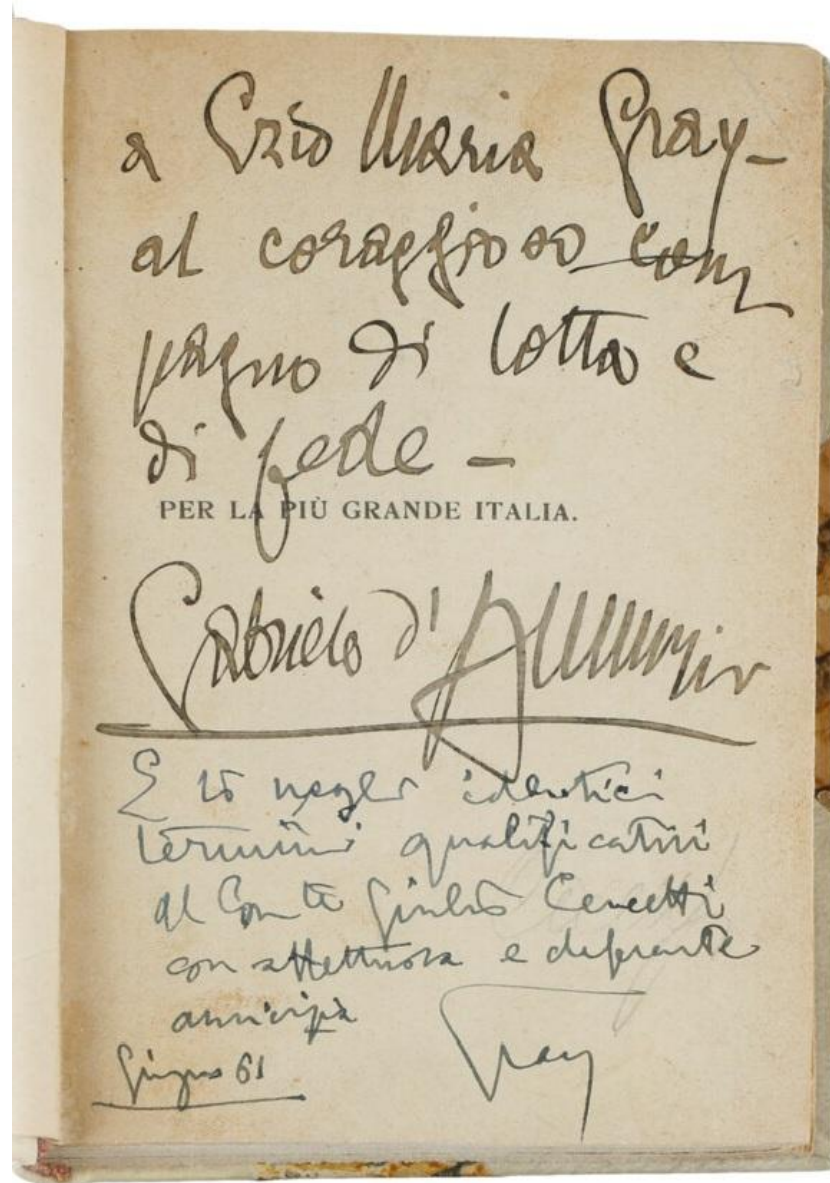 a Ezio Maria Gray-
al coraggioso com
pagno di lotta e
di fede -
PER LA PIÙ GRANDE ITALIA.
Gabriele d'Annunzio
E io negli identici
termini qualificativi
al Conte Giulio Cencetti
con affettuosa e deferente
amicizia
Gray
Giugno 61